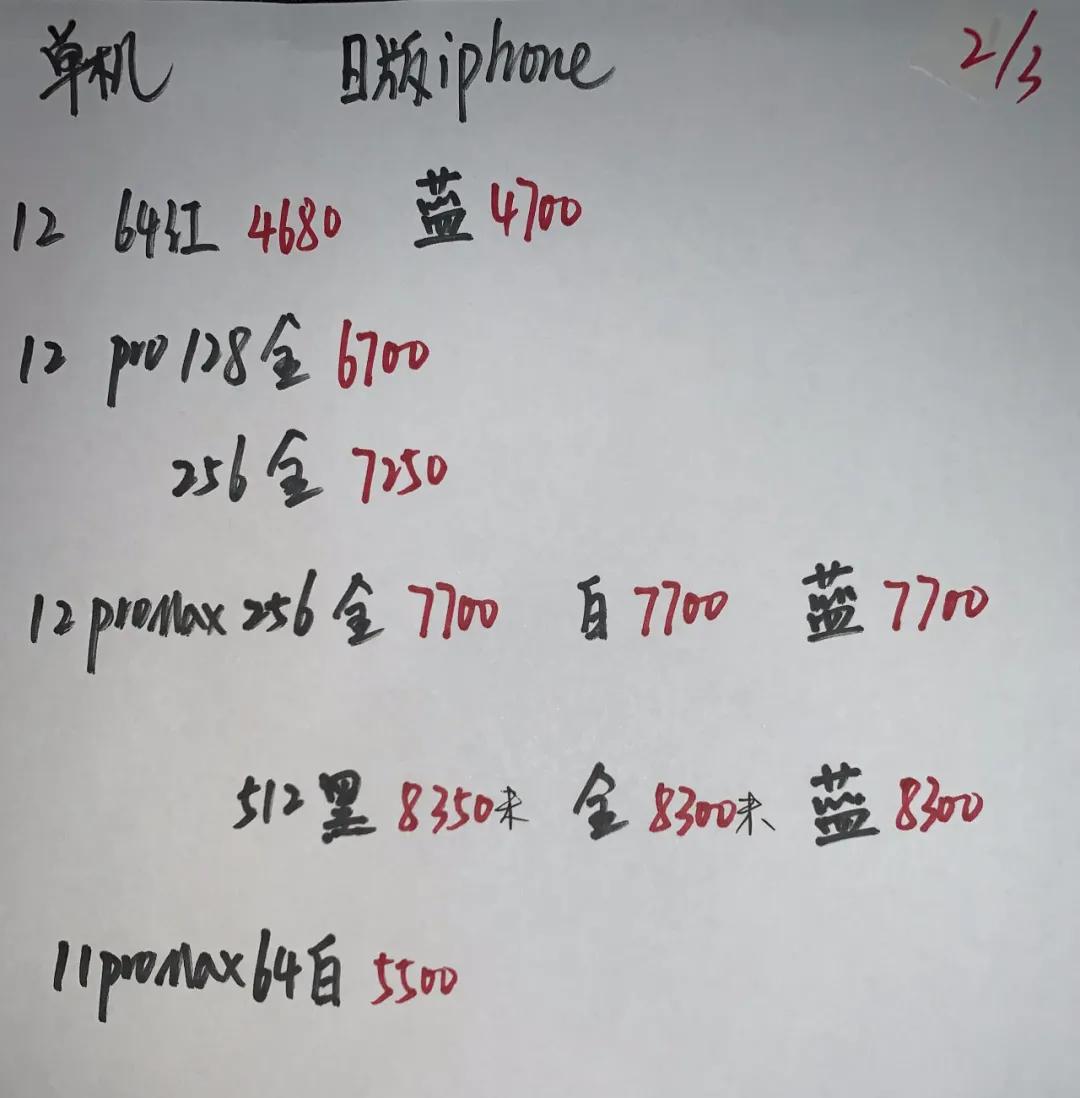 单机 日版iphone 2/3
12 64红 4680 蓝 4700
12 pro 128金 6700
256金 7250
12 promax 256金 7700 白 7700 蓝 7700
512黑 8350未 金 8300未 蓝 8300
11promax64白 5500